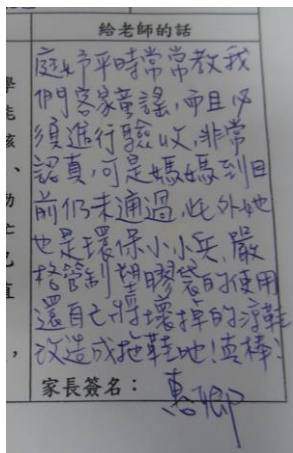 給老師的話
庭妤平時常常教我
們客家童謠,而且必
須進行驗收,非常
認真,可是媽媽到目
前仍未通過,此外她
也是環保小小兵,嚴
格管制塑膠袋的使用
還自己將壞掉的涼鞋
改造成拖鞋地!真棒!
家長簽名: